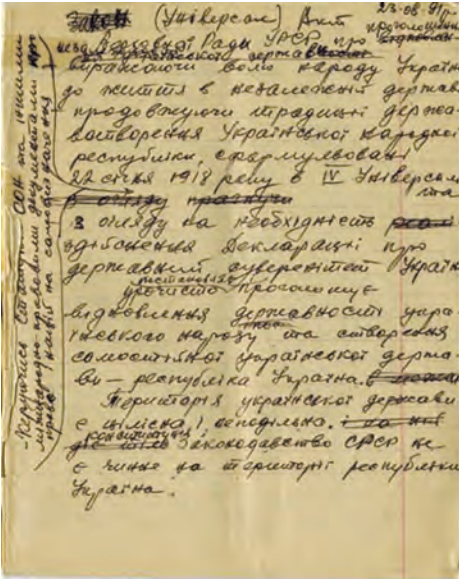 (Універсал) Акт 23-08-91р.
проголошення
незал Верховної Ради УРСР про
українського державності
Виражаючи волю народу Україн
до життя в незалежній держав
продовжуючи традиції держа-
вотворення Української народної
республіки, сформульовані
22 січня 1918 року в IV Універсалі
та
в огляду прагнучи
з огляду на необхідність реалі
здійснення Декларації про
державний суверенітет Україн
урочисто проголошує
відновлення державності укра-
їнського народу та створення
самостійної української держа-
ви — республіка Україна.
Територія української держави
є цілісна і неподільна. і на ній
конституція і
дію Законодавство СРСР не
є чинне на території республіки
Україна.
- Керуючись Статутом ООН та іншими
міжнародно правовими документами про
право націй на самовизначення